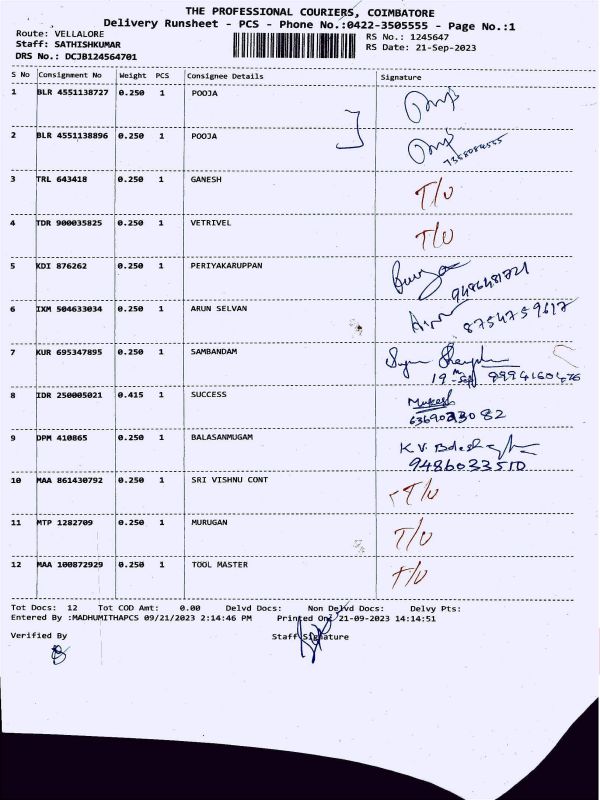 THE PROFESSIONAL COURIERS, COIMBATORE
Delivery Runsheet - PCS - Phone No.:0422-3505555 - Page No.:1
Route: VELLALORE RS No.: 1245647
Staff: SATHISHKUMAR RS Date: 21-Sep-2023
DRS No.: DCJB124564701
S No Consignment No Weight PCS Consignee Details Signature
1 BLR 4551138727 0.250 1 POOJA
2 BLR 4551138896 0.250 1 POOJA
3 TRL 643418 0.250 1 GANESH T/U
4 TDR 900035825 0.250 1 VETRIVEL T/U
5 KDI 876262 0.250 1 PERIYAKARUPPAN
6 IXM 504633034 0.250 1 ARUN SELVAN
8754759617
7 KUR 695347895 0.250 1 SAMBANDAM
8 IDR 250005021 0.415 1 SUCCESS Mukesh
9 DPM 410865 0.250 1 BALASANMUGAM K.V.
9486033510
10 MAA 861430792 0.250 1 SRI VISHNU CONT T/U
11 MTP 1282709 0.250 1 MURUGAN T/U
12 MAA 100872929 0.250 1 TOOL MASTER T/U
Tot Docs: 12 Tot COD Amt: 0.00 Delvd Docs: Non Delvd Docs: Delvy Pts:
Entered By :MADHUMITHAPCS 09/21/2023 2:14:46 PM Printed On: 21-09-2023 14:14:51
Verified By Staff Signature